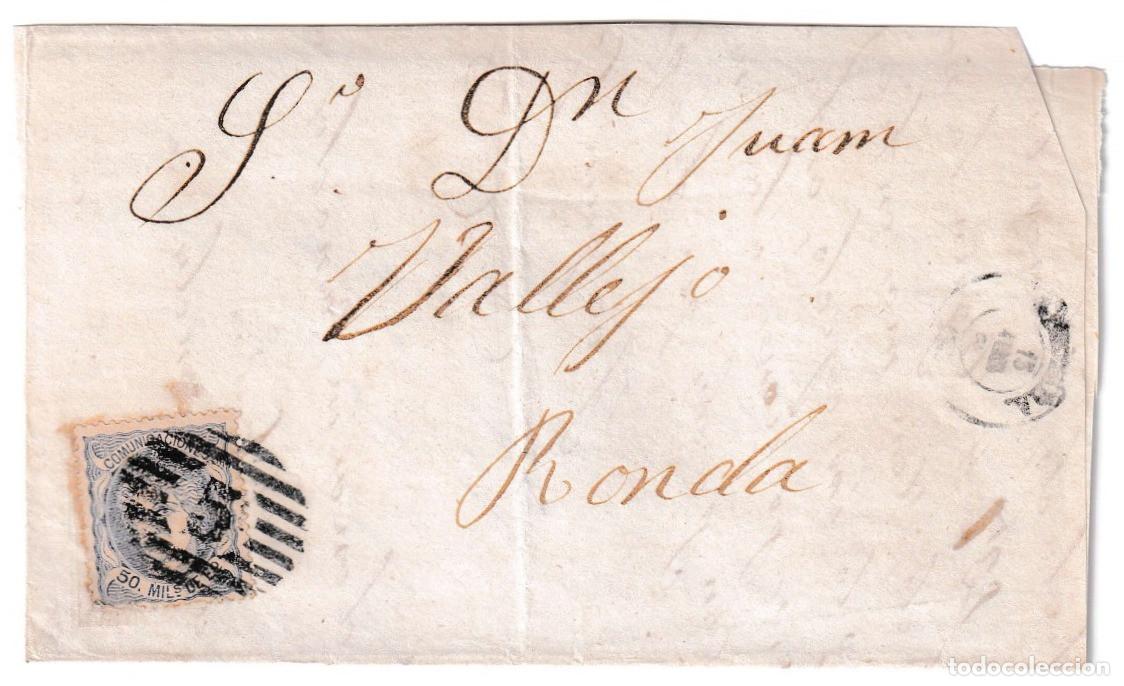 Sr. Dn Juan
Vallejo
Ronda
COMUNICACIONES
50. MILS DE E
13
todocoleccion